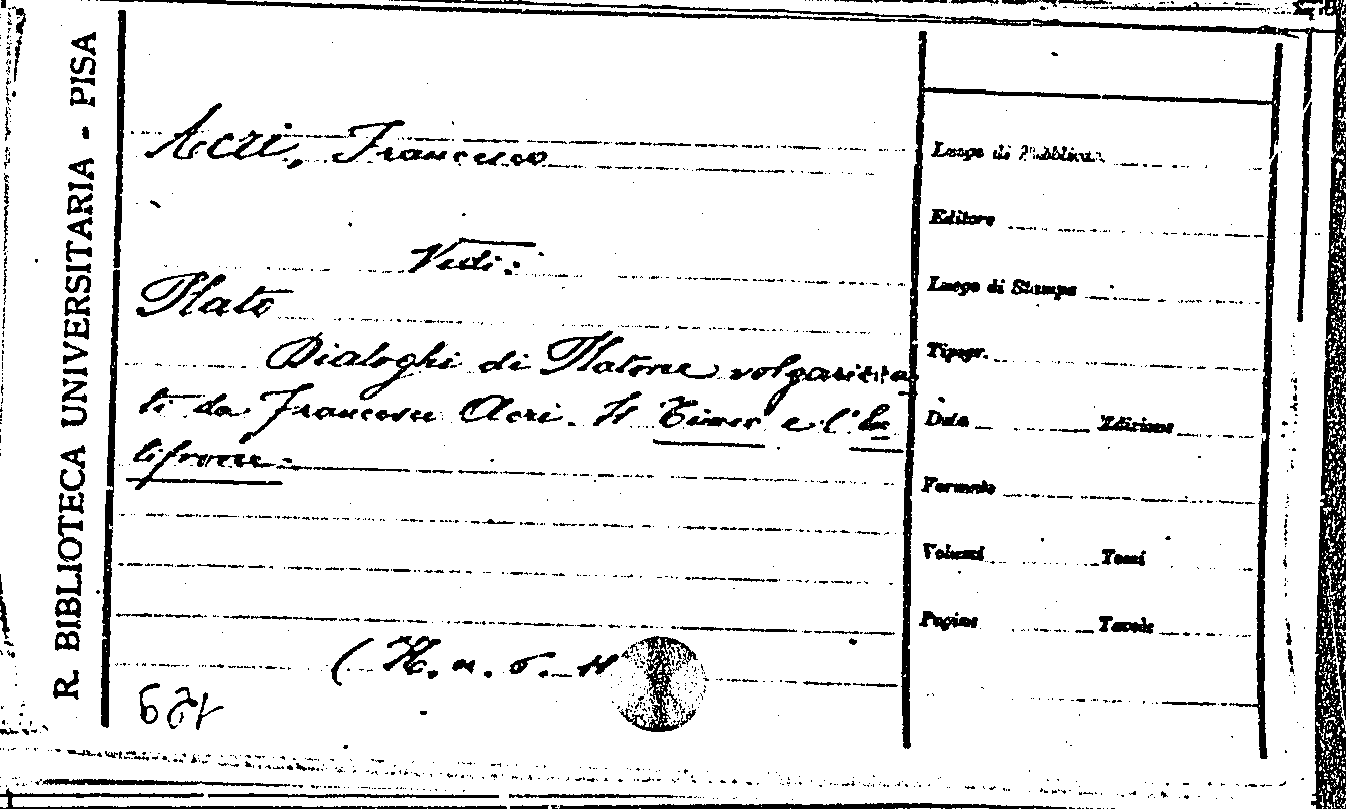 R. BIBLIOTECA UNIVERSITARIA - PISA
Acri, Francesco
Vedi:
Plato
Dialoghi di Platone volgarizza
ti da Francesco Acri. Il Timeo e l'Eu
tifrone.
(H. n. 5. 11
Luogo di Pubblicaz.
Editore
Luogo di Stampa
Tipogr.
Data Edizione
Formato
Volumi Tomi
Pagine Tavole